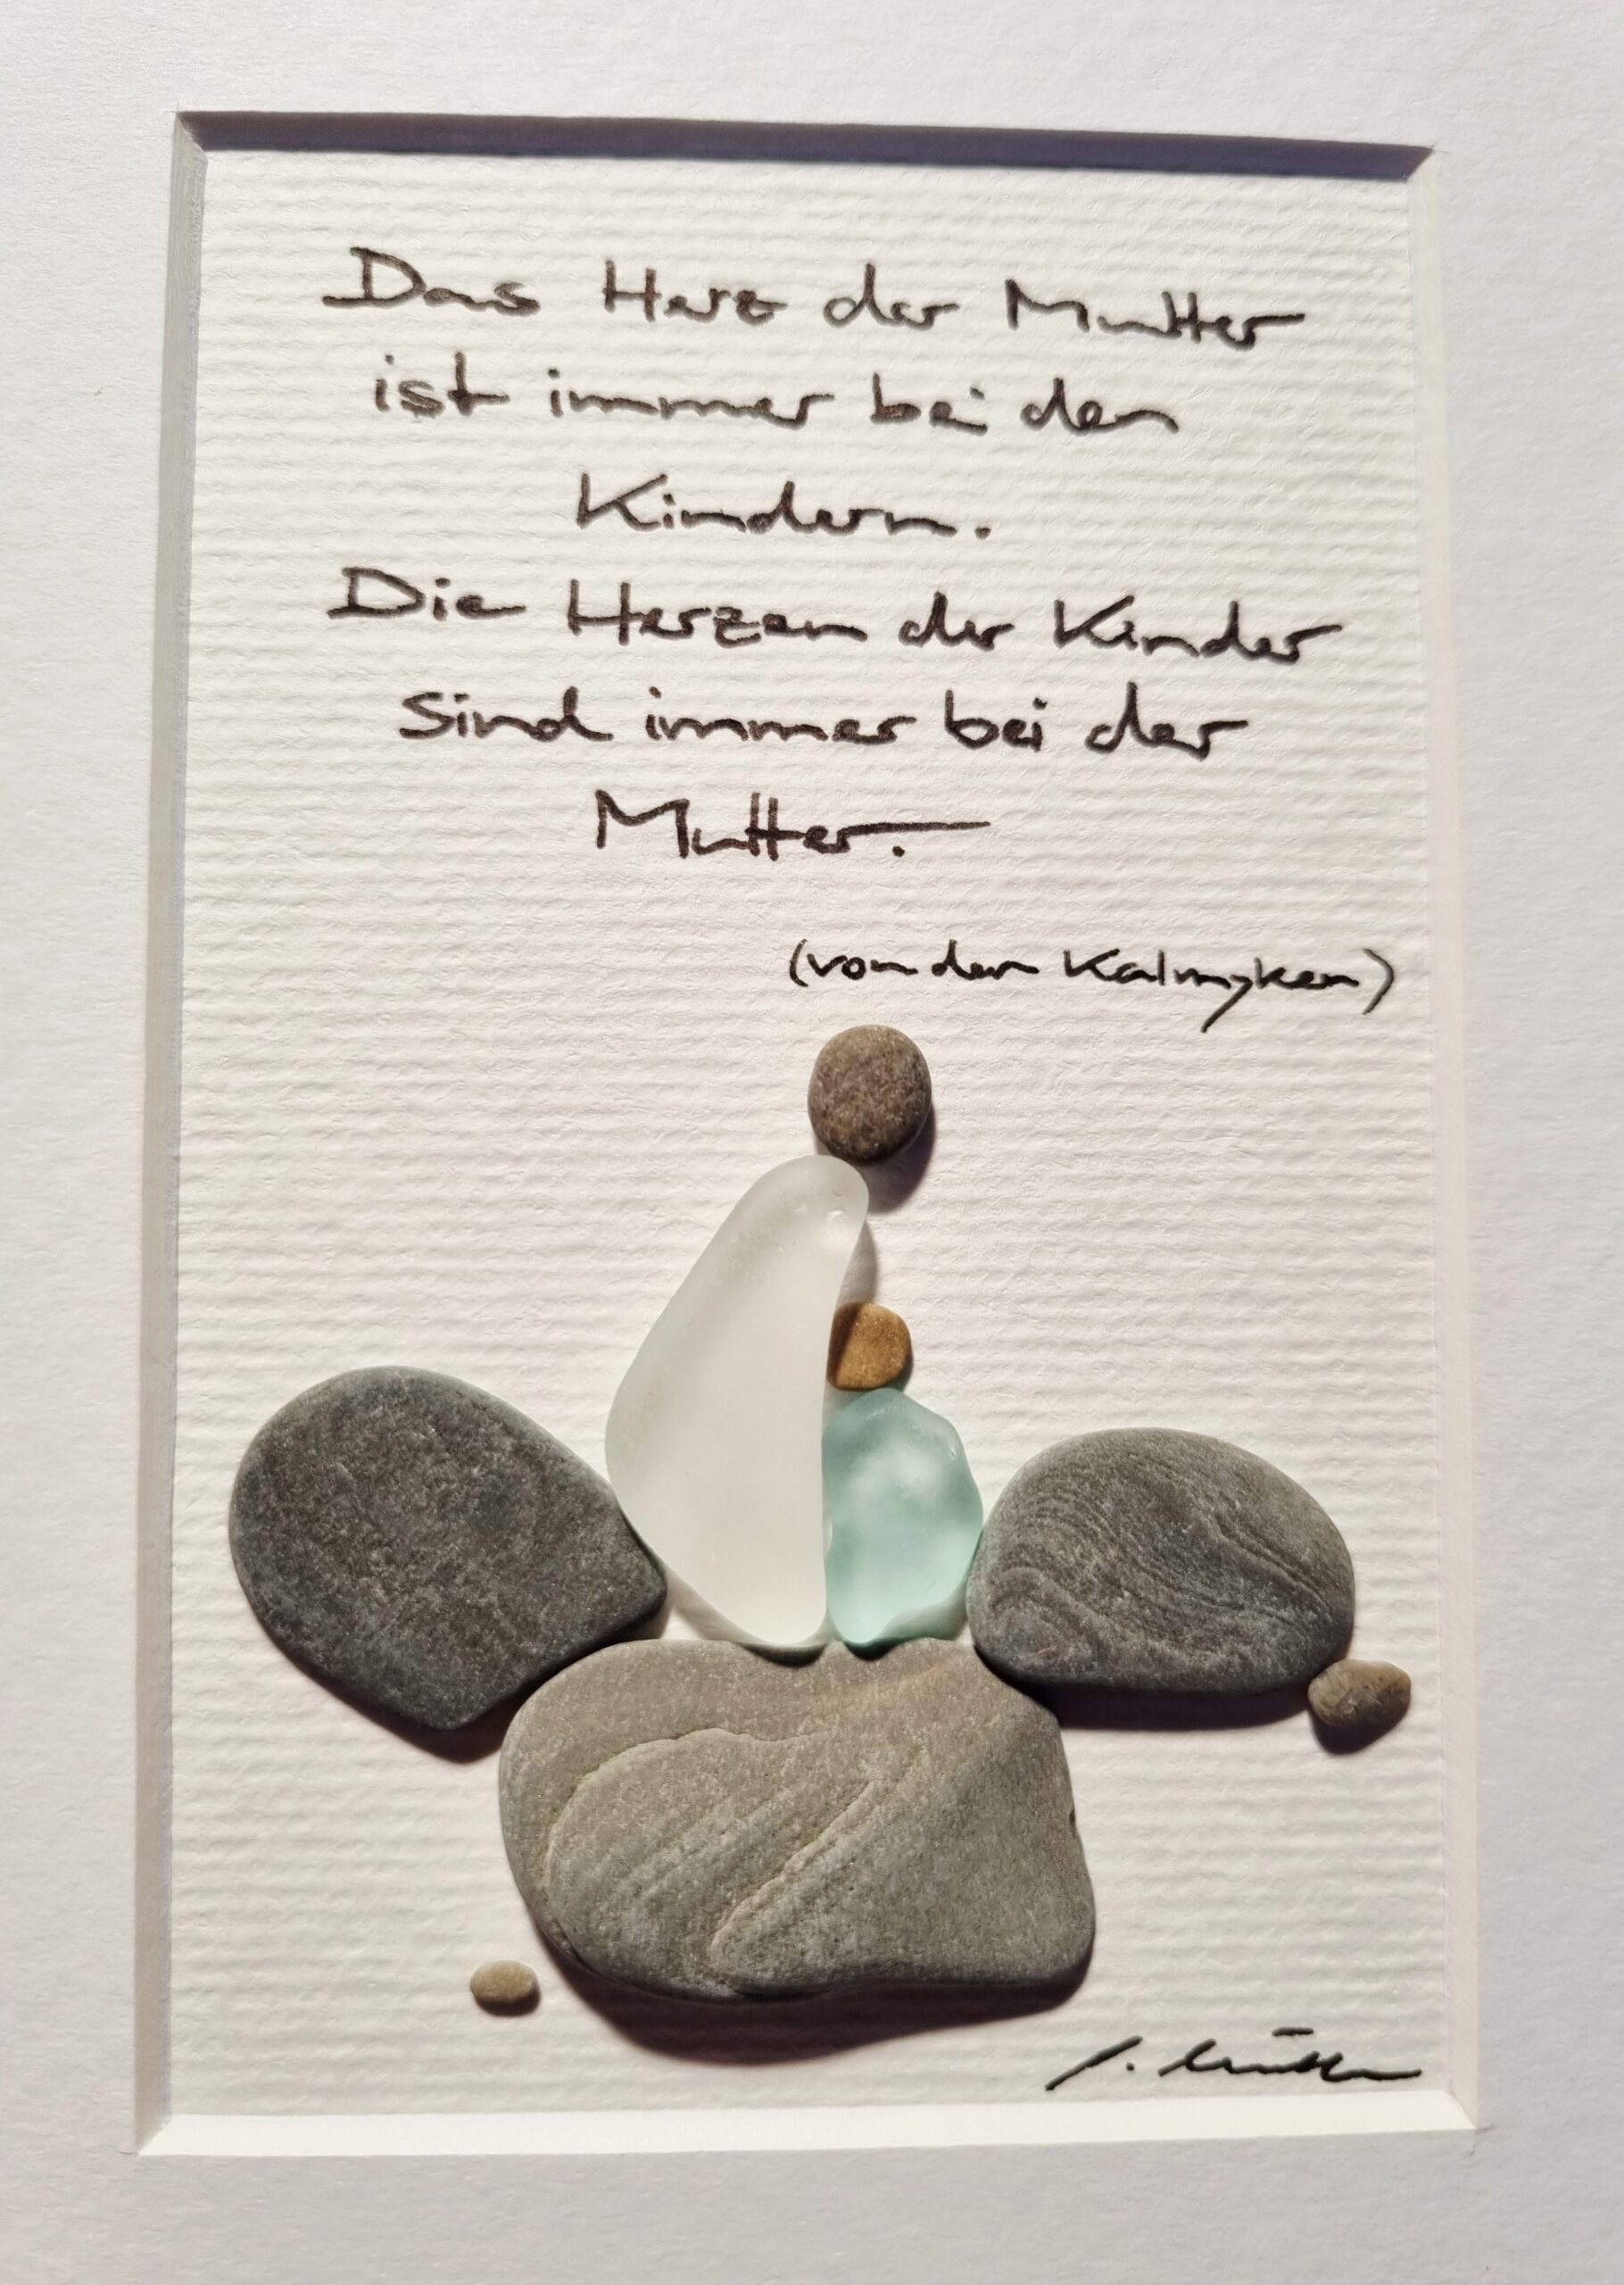 Das Herz der Mutter
ist immer bei den
Kindern.
Die Herzen der Kinder
sind immer bei der
Mutter.
(von den Kalmyken)